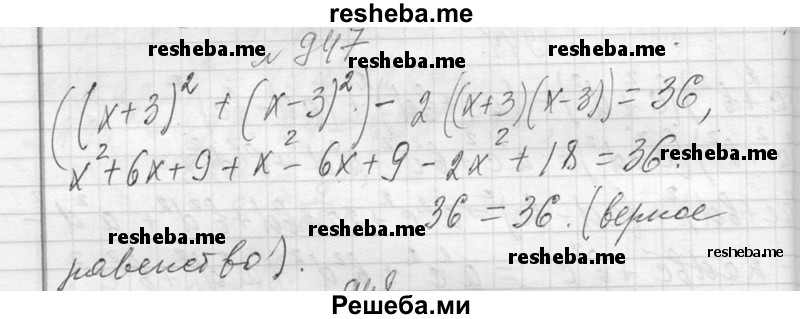 resheba.me
№ 947
resheba.me resheba.me resheba.me
((x+3)² + (x-3)²) - 2((x+3)(x-3)) = 36,
x² + 6x + 9 + x² - 6x + 9 - 2x² + 18 = 36.
resheba.me
36 = 36. (верное
resheba.me resheba.me
равенство).
resheba.me resheba.me
948
Решеба.ми